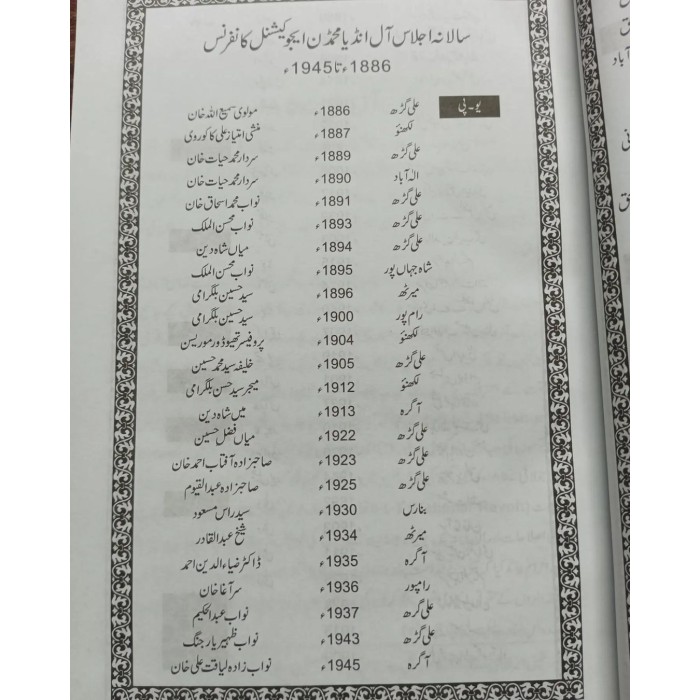 سالانہ اجلاس آل انڈیا محمڈن ایجوکیشنل کانفرنس
1886ء تا 1945ء
یو۔پی علی گڑھ 1886ء مولوی سمیع اللہ خان
لکھنؤ 1887ء منشی امتیاز علی کاکوروی
علی گڑھ 1889ء سردار محمد حیات خان
الہ آباد 1890ء سردار محمد حیات خان
علی گڑھ 1891ء نواب محمد اسحاق خان
علی گڑھ 1893ء نواب محسن الملک
علی گڑھ 1894ء میاں شاہ دین
شاہ جہاں پور 1895ء نواب محسن الملک
میرٹھ 1896ء سید حسین بلگرامی
رام پور 1900ء سید حسین بلگرامی
لکھنؤ 1904ء پروفیسر تھیوڈور موریسن
علی گڑھ 1905ء خلیفہ سید محمد حسین
لکھنؤ 1912ء میجر سید حسن بلگرامی
آگرہ 1913ء میں شاہ دین
علی گڑھ 1922ء میاں فضل حسین
علی گڑھ 1923ء صاحبزادہ آفتاب احمد خان
علی گڑھ 1925ء صاحبزادہ عبدالقیوم
بنارس 1930ء سید راس مسعود
میرٹھ 1934ء شیخ عبدالقادر
آگرہ 1935ء ڈاکٹر ضیاء الدین احمد
رامپور 1936ء سر آغا خان
علی گڑھ 1937ء نواب عبدالحکیم
علی گڑھ 1943ء نواب ظہیر یار جنگ
آگرہ 1945ء نواب زادہ لیاقت علی خان
آباد